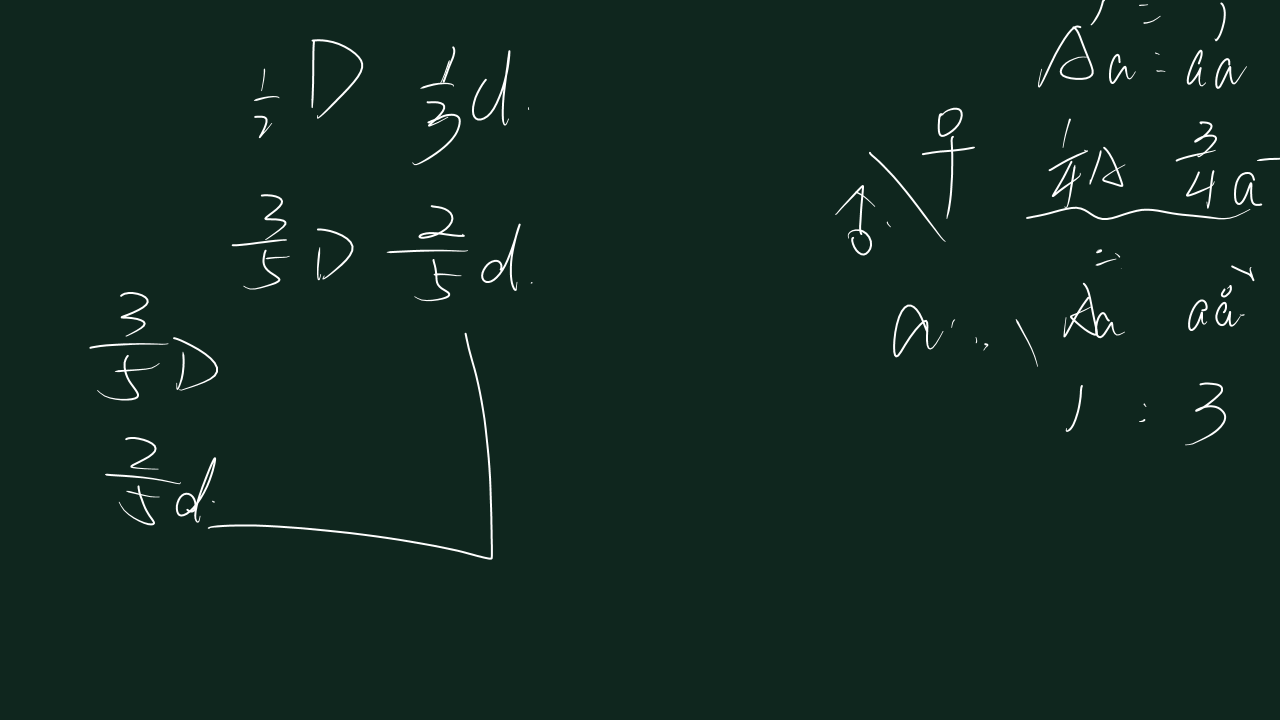 1/2 D 1/3 d.
3/5 D 2/5 d.
3/5 D
2/5 d.
Aa : aa
♀ 1/4 A 3/4 a
♂
=
a Aa aa
1 : 3